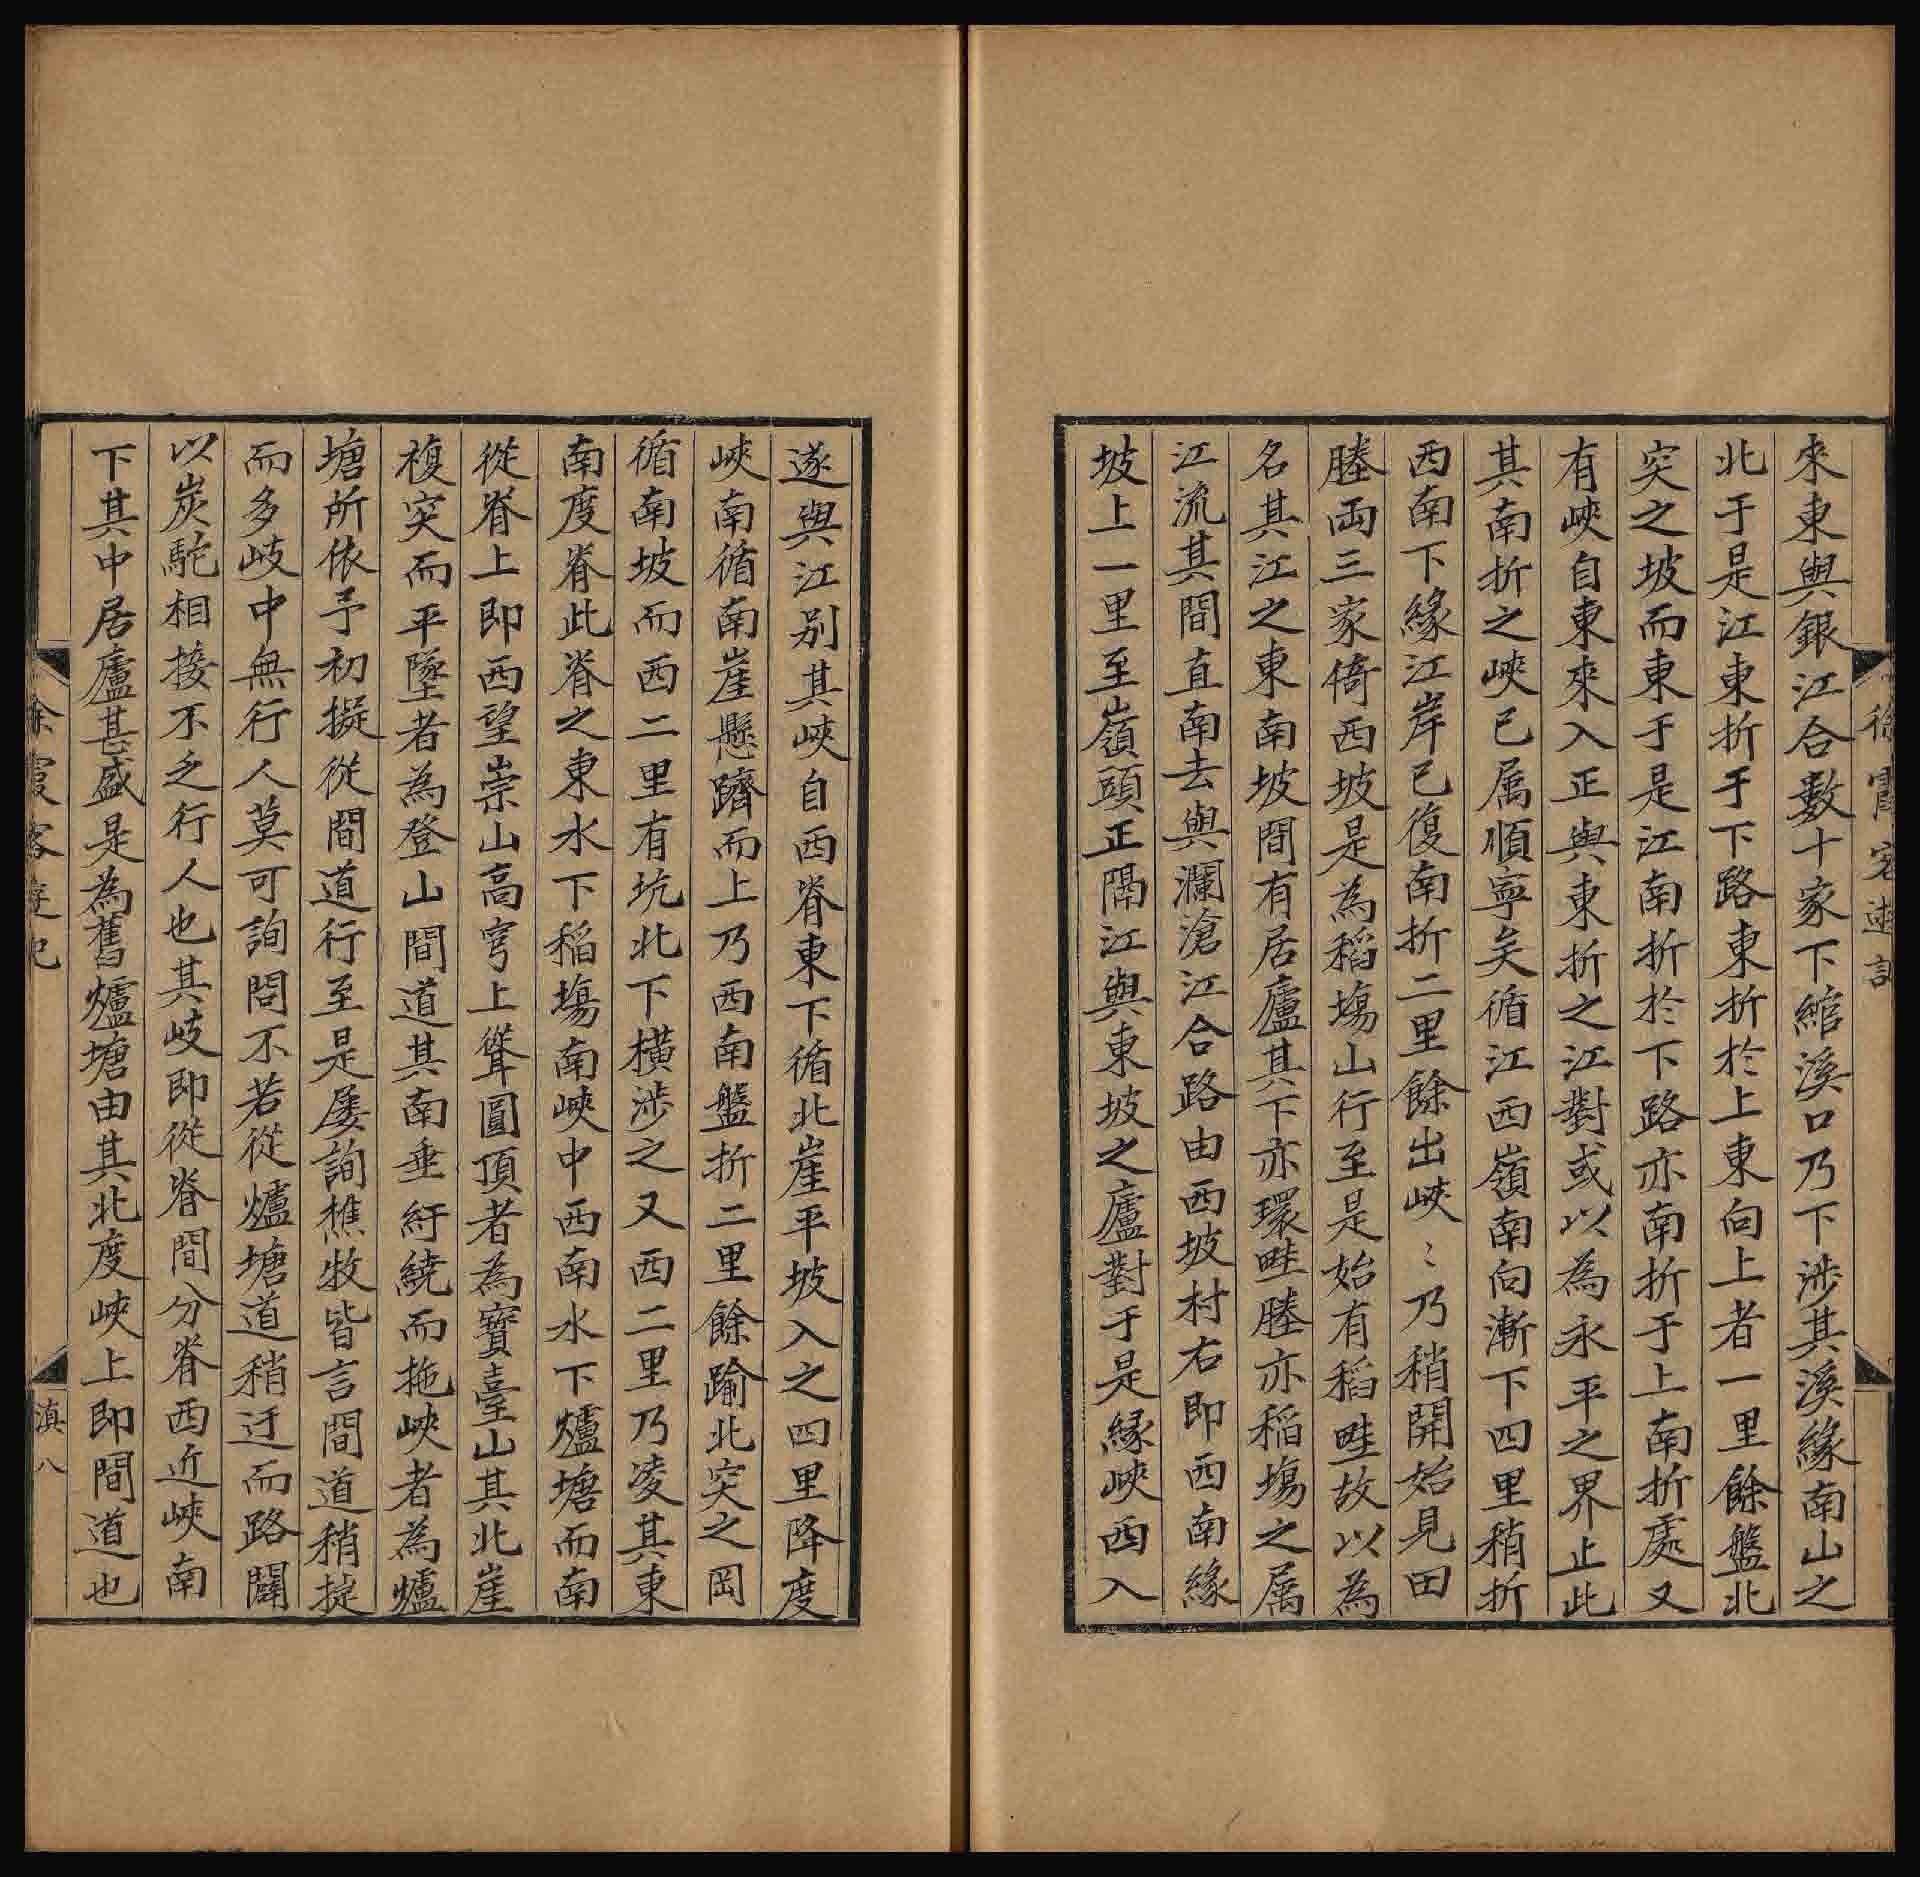 徐霞客遊記
來東與銀江合數十家下綰溪口乃下涉其溪緣南山之
北于是江東折于下路東折於上東向上者一里餘盤北
突之坡而東于是江南折於下路亦南折于上南折處又
有峽自東來入正與東折之江對或以為永平之界止此
其南折之峽已属順寧矣循江西嶺南向漸下四里稍折
西南下緣江岸已復南折二里餘出峽〻乃稍開始見田
塍両三家倚西坡是為稻塲山行至是始有稻畦故以為
名其江之東南坡間有居廬其下亦環畦塍亦稻塲之属
江流其間直南去與瀾滄江合路由西坡村右即西南緣
坡上一里至嶺頭正隔江與東坡之廬對于是緣峽西入
遂與江别其峽自西脊東下循北崖平坡入之四里降度
峽南循南崖懸躋而上乃西南盤折二里餘踰北突之岡
循南坡而西二里有坑北下橫涉之又西二里乃凌其東
南度脊此脊之東水下稻塲南峽中西南水下爐塘而南
從脊上即西望崇山高穹上聳圓頂者為寶臺山其北崖
複突而平墜者為登山間道其南垂紆繞而拖峽者為爐
塘所依予初擬從間道行至是屡詢樵牧皆言間道稍捷
而多岐中無行人莫可詢問不若從爐塘道稍迂而路闢
以炭駝相接不乏行人也其岐即從脊間分脊西近峽南
下其中居廬甚盛是為舊爐塘由其北度峽上即間道也
徐霞客遊記
滇八